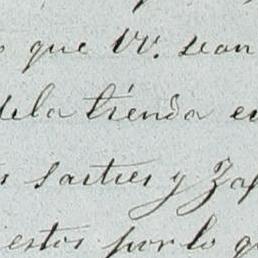 que VV. sean
dela tienda
sastres y Zap
estos por lo q